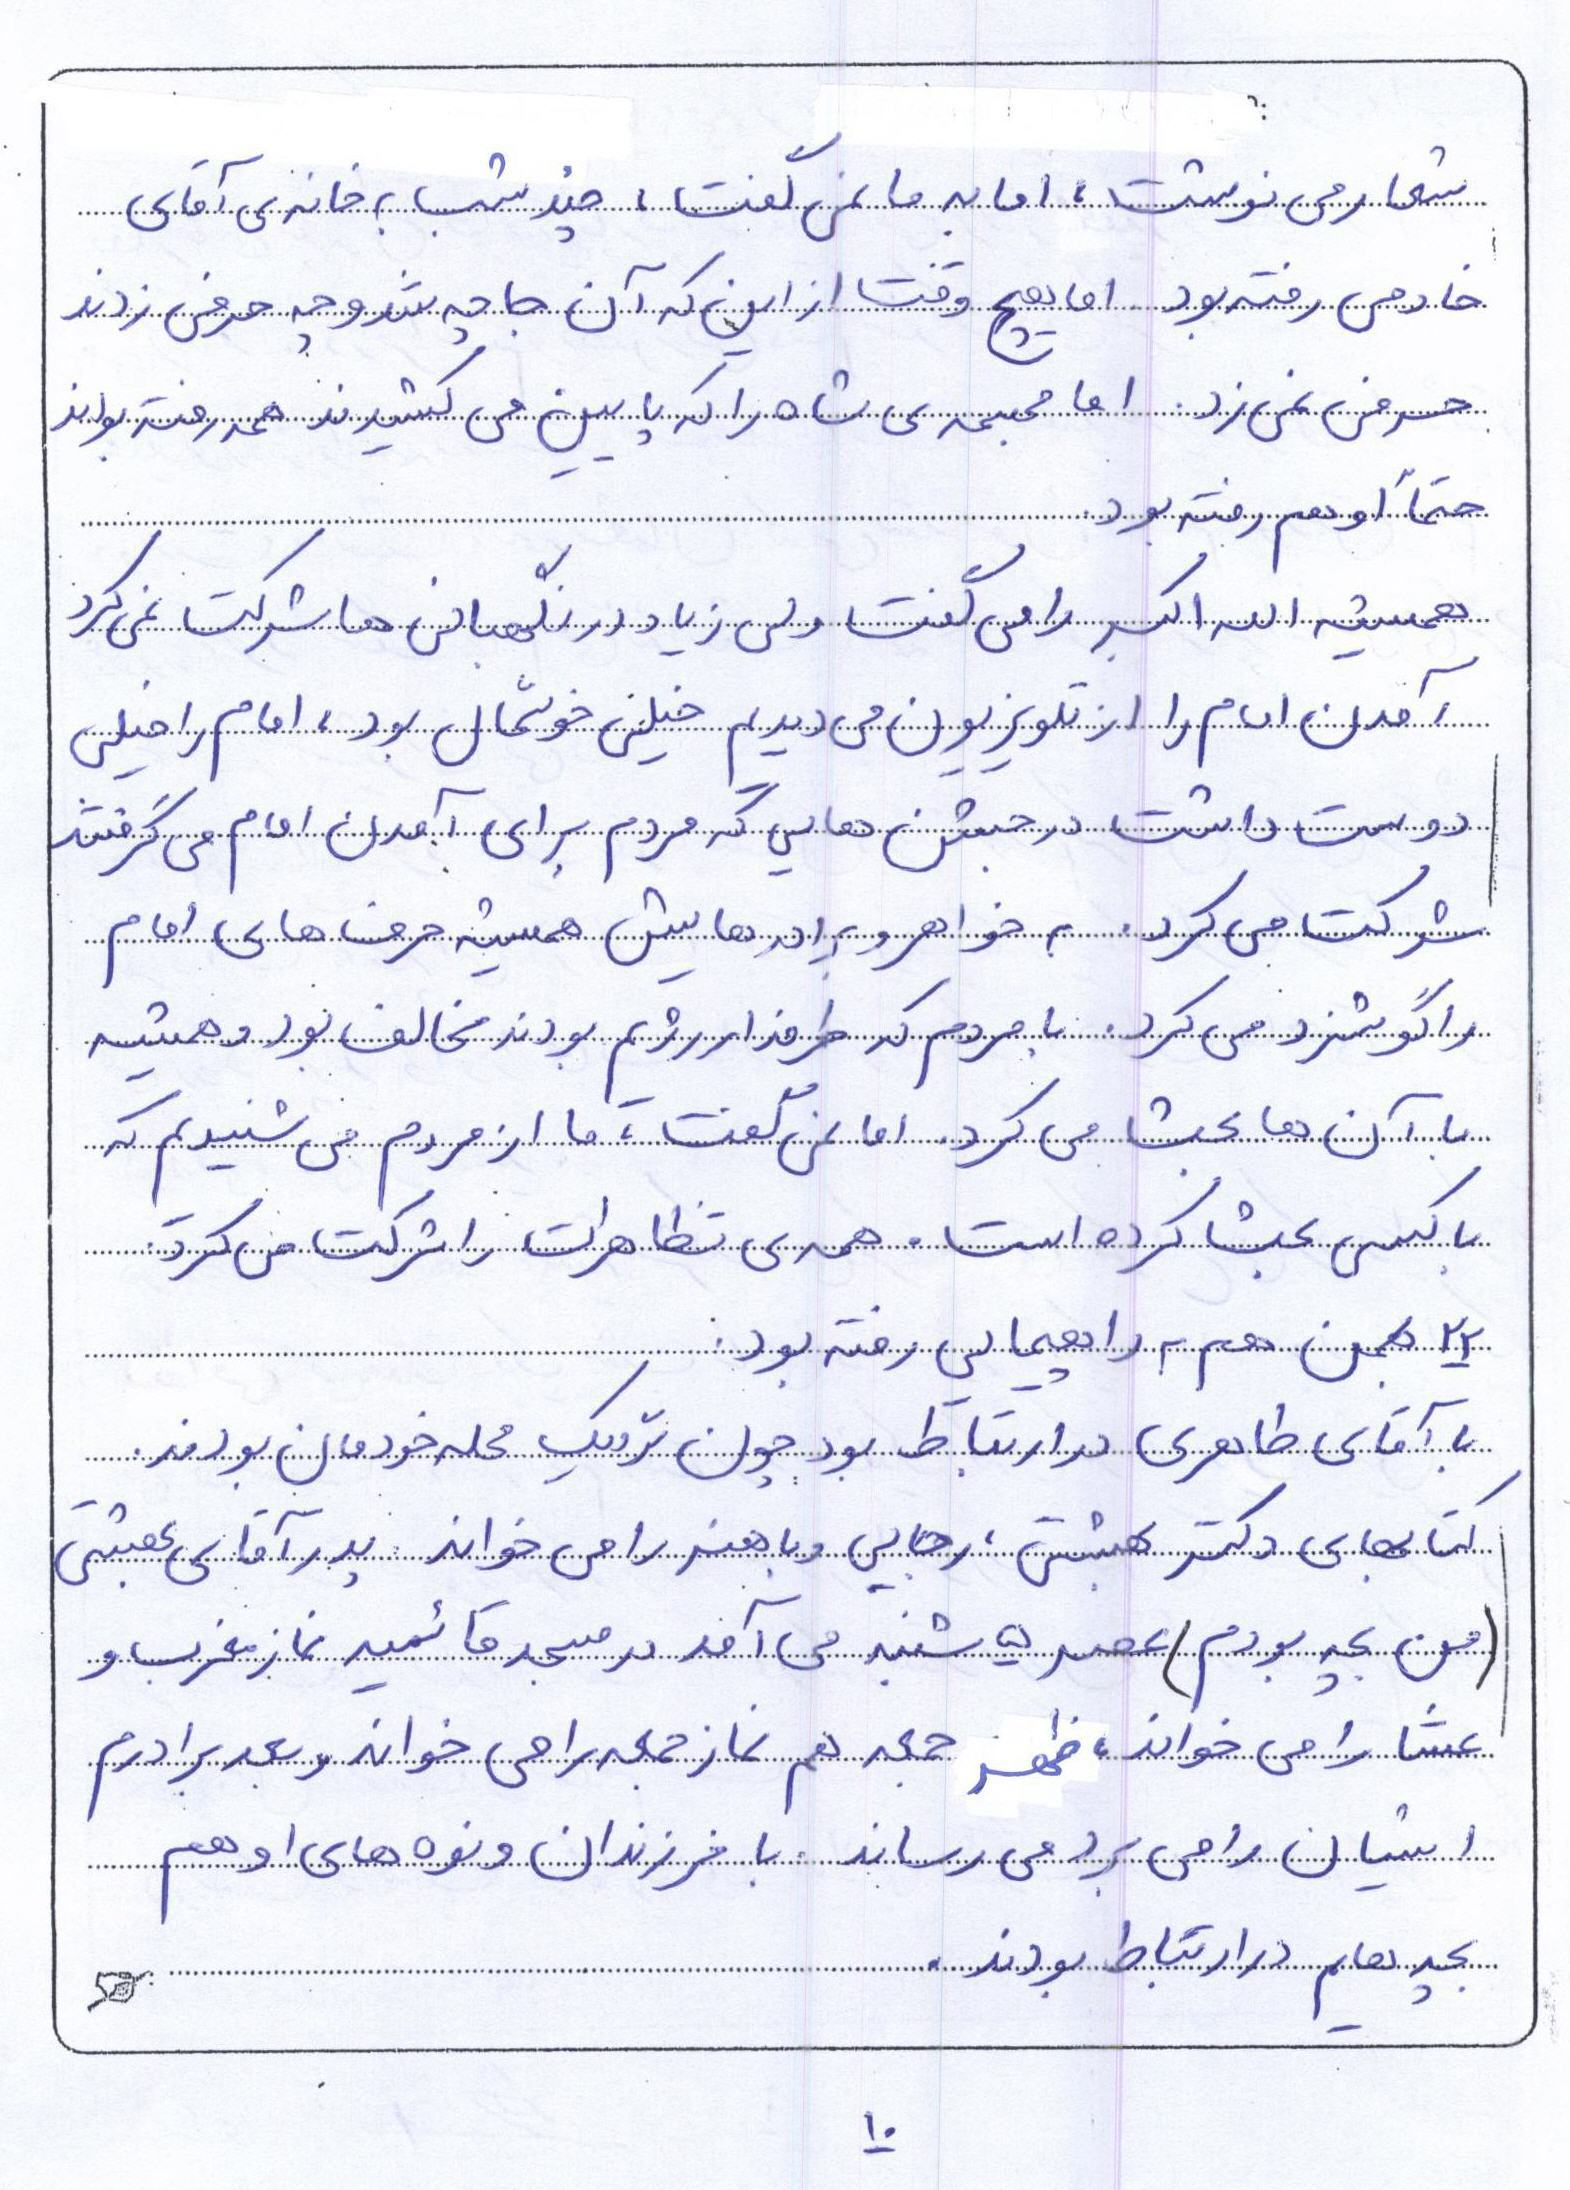 شعار می نوشت، اما به ما نمی گفت، چند شب به خانه ی آقای
خادمی رفته بود. اما هیچ وقت از این که آن جا چه شد و چه حرفی زدند
حرفی نمی زد. اما مجسمه ی شاه را که پایین می کشیدند همه رفته بودند
حتماً او هم رفته بود.
همیشه الله اکبر را می گفت ولی زیاد در نگهبانی ها شرکت نمی کرد
آمدن امام را از تلویزیون می دیدیم خیلی خوشحال بود، امام را خیلی
دوست داشت در جشن هایی که مردم برای آمدن امام می گرفتند
شرکت می کرد. به خواهر و برادرهایش همیشه حرف های امام
را گوشزد می کرد. با مردم که طرفدار رژیم بودند مخالف بود و همیشه
با آن ها بحث می کرد. اما نمی گفت، ما از مردم می شنیدیم که
با کسی بحث کرده است. همه ی تظاهرات را شرکت می کرد.
۲۲ بهمن هم به راهپیمایی رفته بود.
با آقای طاهری در ارتباط بود چون نزدیک محله خودمان بودند.
کتابهای دکتر بهشتی، رجایی و باهنر را می خواند. پدر آقای بهشتی
(من بچه بودم) عصر ۵ شنبه می آمد در مسجد قائمیه نماز مغرب و
عشا را می خواند، ظهر جمعه هم نماز جمعه را می خواند و بعد برادرم
ایشان را می برد می رساند. با فرزندان و نوه های او هم
بچه هایم در ارتباط بودند.
۱۰